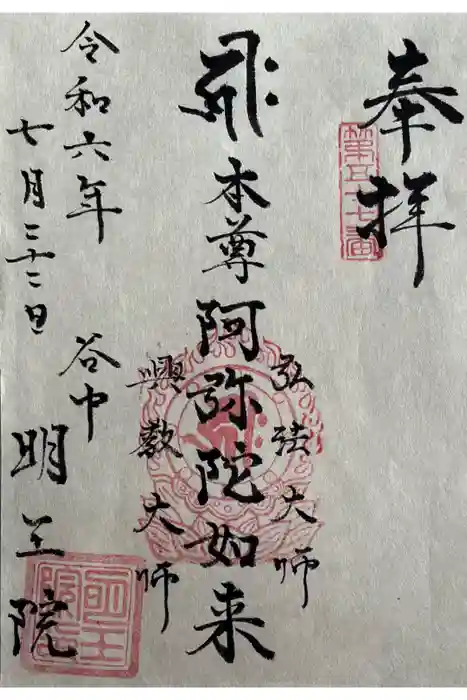 奉拝
第五十七番
弘法大師
ह्रीः 本尊 阿弥陀如来
興教大師
令和六年
七月二十二日
谷中 明王院